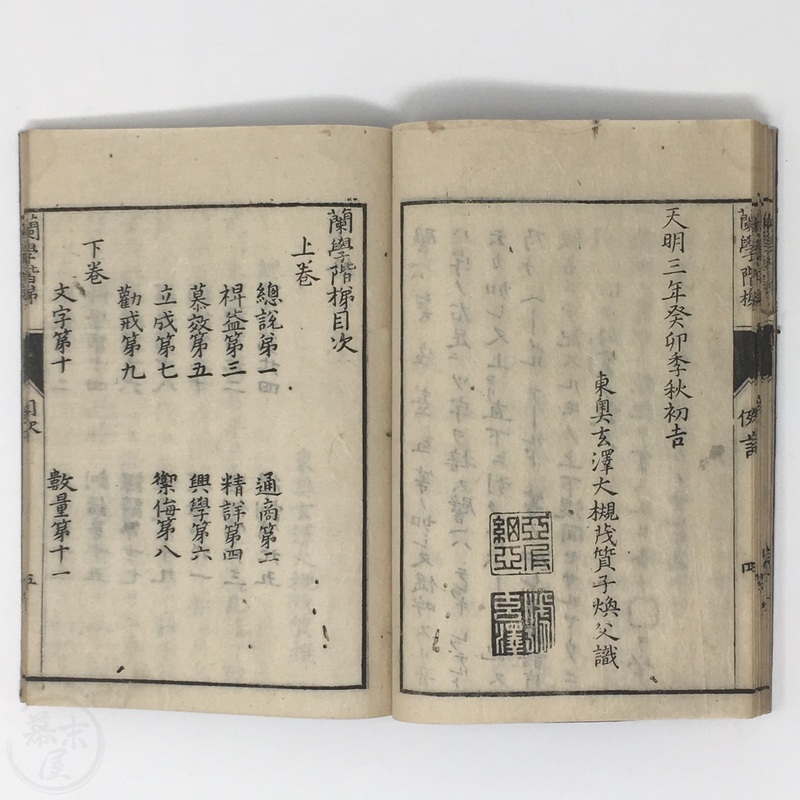 蘭學階梯 例言 四
天明三年癸卯季秋初吉
東奧玄澤大槻茂質子煥父識
蘭學階梯目次
上卷
總說第一 通商第二
裨益第三 精詳第四
慕效第五 興學第六
立成第七 禦侮第八
勸戒第九
下卷
文字第十 數量第十一
蘭學階梯 目次 五
幕末屋